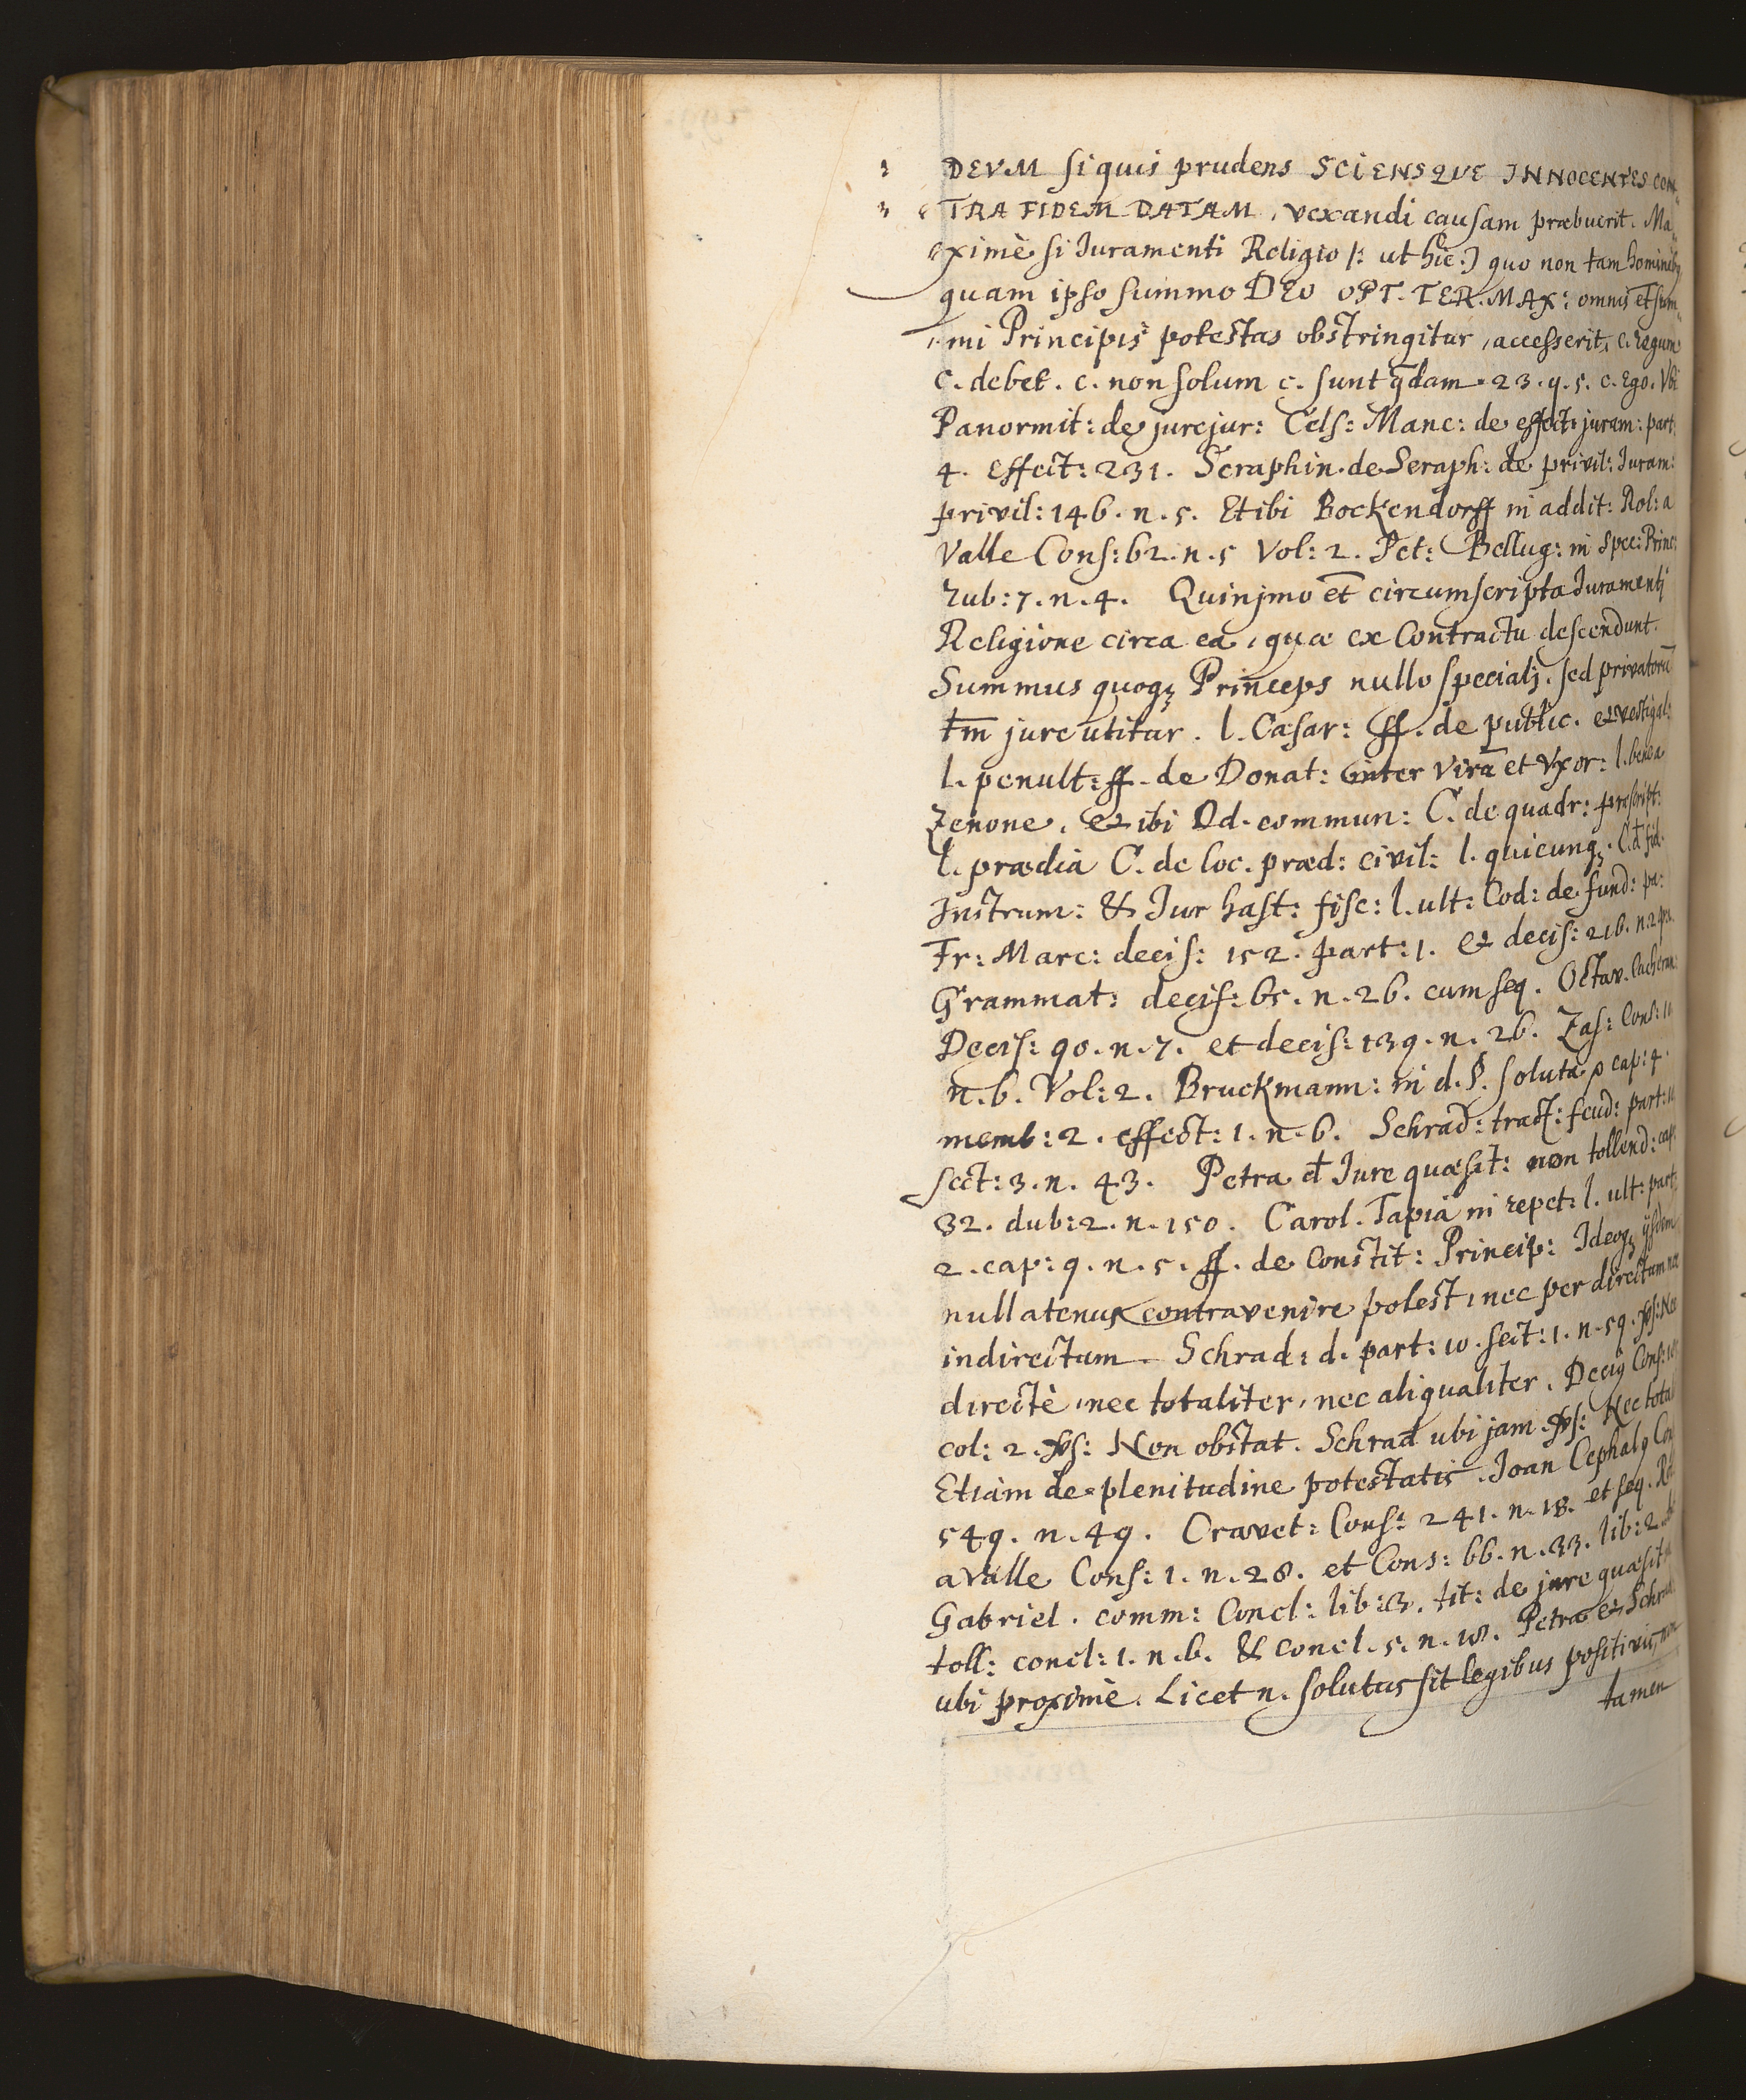 DEVM si quis prudens SCIENSQVE INNOCENTES CON„
TRA FIDEM DATAM, vexandi causam præbuerit. Ma„
„ximè si Juramenti Religio |: ut hic :| quo non tam hominibq
quam ipso summo DEO OPT. TER. MAX: omnis et sum„
„mi Principis potestas obstringitur, accesserit, c. Regum
c. debet. c. non solum c. sunt qdam. 23. q. 5. c. Ego. Vbi
Panormit: de jurejur: Cels: Manc: de effect: juram: part:
4. effect: 231. Seraphin. de Seraph: de privil: Juram:
privil: 146. n. 5. Et ibi Bockendorff in addit: Rol: a
Valle Cons: 62. n. 5 Vol: 2. Pet: Bellug: in Spec: Princ:
rub: 7. n. 4. Quinjmo et circumscripta Juramentj
Religione circa ea, quæ ex Contractu descendunt.
Summus quoqz Princeps nullo specialj, sed privatorū
tm̄ jure utitur. l. Cæsar: ff. de public. et vestigal:
l. penult: ff. de Donat: inter Virū et Vxor: l. benea
Zenone. et ibi Dd. commun: C. de quadr: præscript:
l. prædia C. de loc. præd: civil: l. quicunqz. C. d fid:
Instrum: & Jur hast: fisc: l. ult: Cod: de fund: pa:
Fr: Marc: decis: 152. part: 1. et decis: 216. n. 2
Grammat: decis: 65. n. 26. cum seq. Octav. Cacheran:
Decis: 90. n. 7. et decis: 139. n. 26. Zas: Cons: 11
n. 6. Vol: 2. Bruckmann: in d. §. soluta p cap: 4.
memb: 2. effect: 1. n. 6. Schrad: tract: feud: part: 10
sect: 3. n. 43. Petra d Jure quæsit: non tollend: cap:
32. dub: 2. n. 150. Carol. Tapia in repet: l. ult: part:
2. cap: 9. n. 5. ff. de Constit: Princip: Ideoqz ijsdem
nullatenus contravenire potest, nec per directum nec
indirectum. Schrad: d. part: 10. sect: 1. n. 59. vs: Nec
directè, nec totaliter, nec aliqualiter. Decig Cons:
col: 2. vs: Non obstat. Schrad ubi jam. vs: Nec total
Etiam de plenitudine potestatis. Joan Cephalq Con
549. n. 49. Cravet: Cons: 241. n. 18. et seq. Rol
a Valle Cons: 1. n. 28. et Cons: 66. n. 33. lib: 2.
Gabriel. comm: Concl: lib: 3. tit: de jure quæsit
toll: concl: 1. n. 6. & concl. 5. n. 18. Petra et Schrad
ubi proximè. Licet n. solutus sit legibus positivis, non
tamen